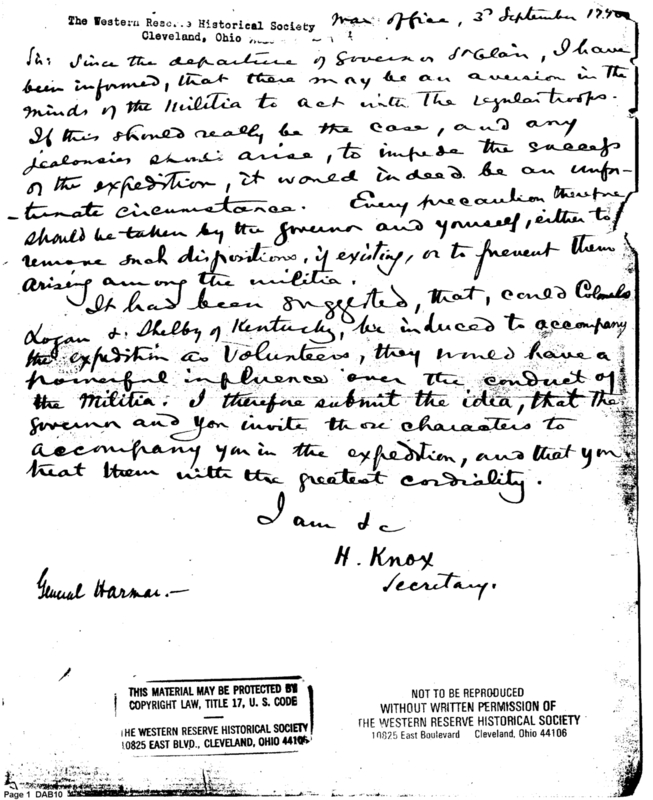 The Western Reserve Historical Society
Cleveland, Ohio
War office, 3d September 1790
Sir: Since the departure of Governor St Clair, I have
been informed, that there may be an aversion in the
minds of the Militia to act with the regular troops.
If this should really be the case, and any
jealousies should arise, to impede the success
of the expedition, it would indeed be an unfor-
-tunate circumstance. Every precaution therefore
should be taken by the governor and yourself, either to
remove such dispositions, if existing, or to prevent them
arising among the militia.
It had been suggested, that, could Colonels
Logan & Shelby of Kentucky, be induced to accompany
the expedition as Volunteers, they would have a
powerful influence over the conduct of
the Militia. I therefore submit the idea, that the
Governor and you invite those characters to
accompany you in the expedition, and that you
treat them with the greatest cordiality.
I am &c
H. Knox
Secretary.
General Harmar.—
THIS MATERIAL MAY BE PROTECTED BY
COPYRIGHT LAW, TITLE 17, U. S. CODE
THE WESTERN RESERVE HISTORICAL SOCIETY
10825 EAST BLVD., CLEVELAND, OHIO 44106
NOT TO BE REPRODUCED
WITHOUT WRITTEN PERMISSION OF
THE WESTERN RESERVE HISTORICAL SOCIETY
10825 East Boulevard Cleveland, Ohio 44106
Page 1 DAB10